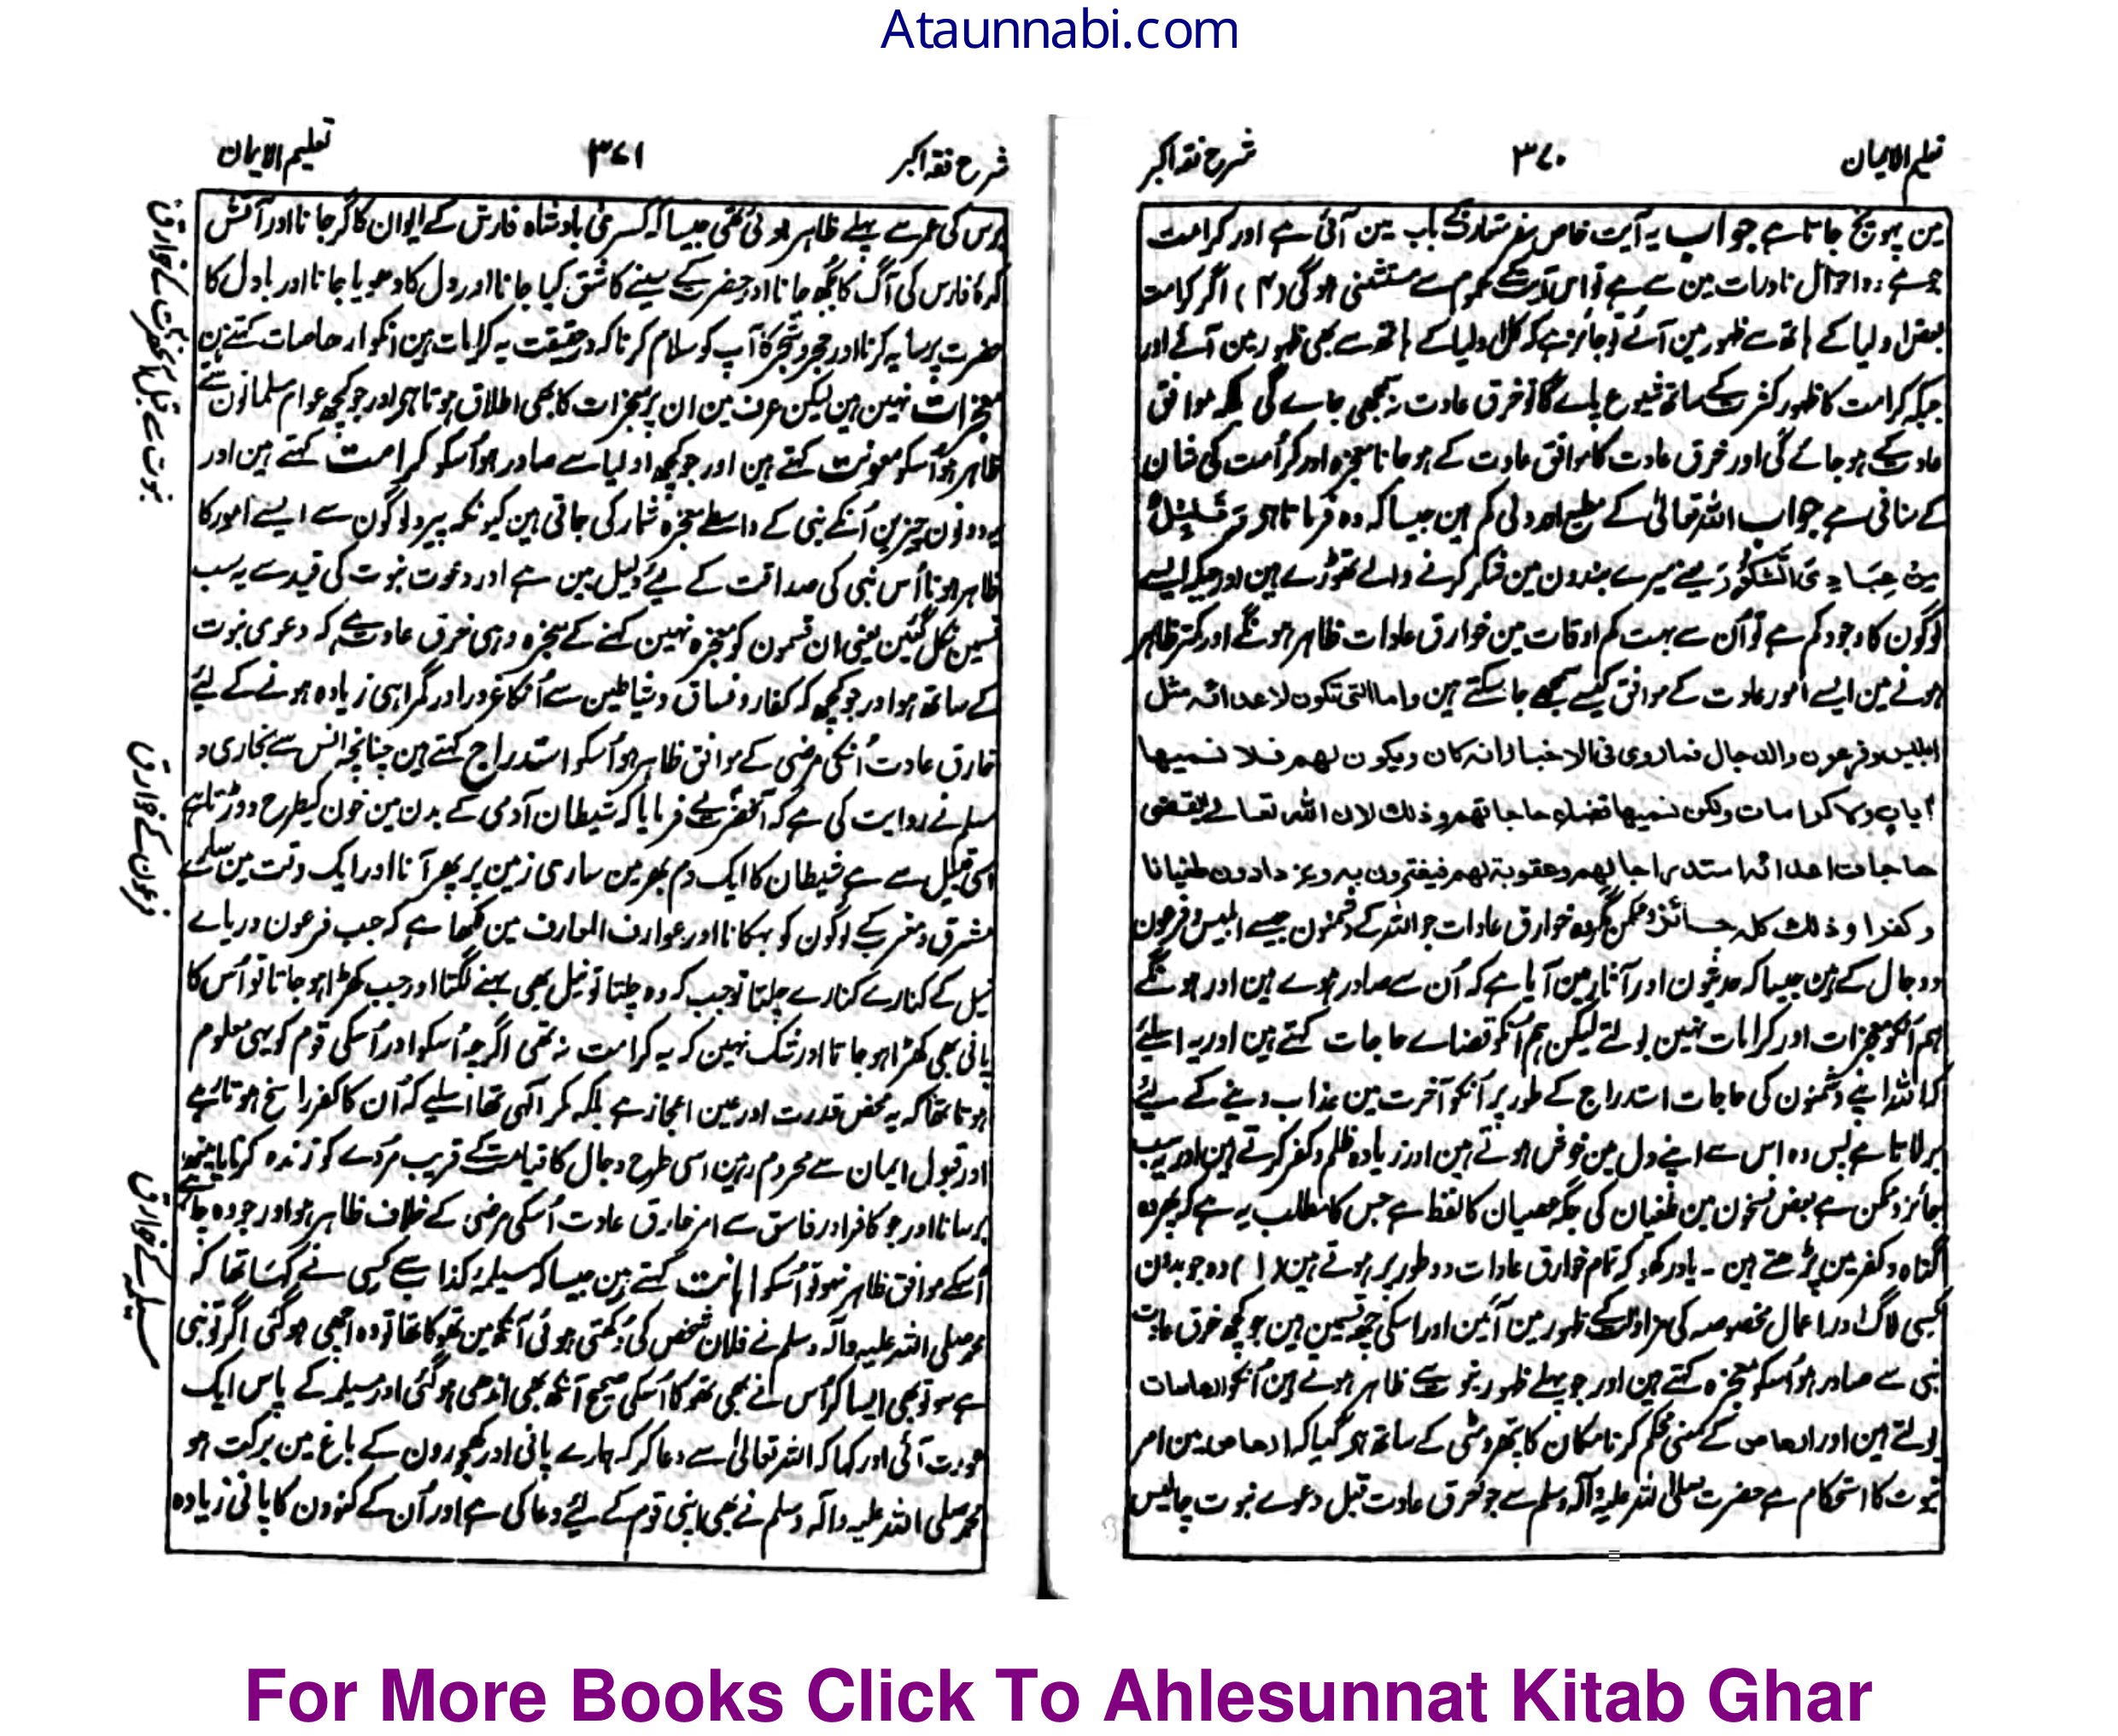 Ataunnabi.com
تعلیم الایمان ۳۷۰ شرح فقہ اکبر
مین پہونچ جاتا ہے جواب یہ آیت خاص سفر متعارف کے باب مین آئی ہے اور کرامت
جو ہے وہ احوال نادرات مین سے ہے تو اس آیت کے عموم سے مستثنی ہوگی (۴) اگر کرامت
بعض اولیا کے ہاتھ سے ظہور مین آئے تو جائز ہے کہ کل اولیا کے ہاتھ سے بھی ظہور مین آئے اور
جبکہ کرامت کا ظہور کثرت کے ساتھ شیوع پاے گا تو خرق عادت نہ سمجھی جاے گی بلکہ موافق
عادت کے ہو جائے گی اور خرق عادت کا موافق عادت کے ہو جانا معجزہ اور کرامت کی شان
کے منافی ہے جواب اللہ تعالیٰ کے مطیع اور ولی کم ہین جیسا کہ وہ فرماتا ہی وَ قَلِیْلٌ
مِّنْ عِبَادِیَ الشَّکُوْرُ یعنے میرے بندون مین شکر کرنے والے تھوڑے ہین اور جبکہ ایسے
لوگون کا وجود کم ہے تو اُن سے بہت کم اوقات مین خوارق عادات ظاہر ہونگے اور کمتر ظاہر
ہونے مین ایسے امور عادت کے موافق کیسے سمجھے جا سکتے ہین واما التی تکون لاعدائہ مثل
ابلیس وفرعون والدجال فماروی فی الاخبار انہ کان ویکون لہم فلا نسمیہا
آیات ولا کرامات ولکن نسمیہا قضاء حاجاتہم وذلک لان اللہ تعالے یقضی
حاجات اعدائہ استدراجا لہم وعقوبۃ لہم فیغترون بہ ویزدادون طغیانا
وکفرا وذلک کلہ جائز وممکن مگر وہ خوارق عادات جو اللہ کے دشمنون جیسے ابلیس و فرعون
ودجال کے ہین جیسا کہ حدیثون اور آثار مین آیا ہے کہ اُن سے صادر ہوے ہین اور ہونگے
ہم اُنکو معجزات اور کرامات نہین بولتے لیکن ہم اُنکو قضاے حاجات کہتے ہین اور یہ اسلیے
کہ اللہ اپنے دشمنون کی حاجات استدراج کے طور پر اُنکو آخرت مین عذاب دینے کے لیے
برلاتا ہے پس وہ اس سے اپنے دل مین خوش ہوتے ہین اور زیادہ ظلم و کفر کرتے ہین اور یہ سب
جائز و ممکن ہے بعض نسخون مین طغیان کی جگہ عصیان کا لفظ ہے جس کا مطلب یہ ہے کہ پھر وہ
گناہ و کفر مین پڑھتے ہین ۔ یاد رکھو کہ تمام خوارق عادات دو طور پر ہوتے ہین (۱) وہ جو بدون
کسی لاگ اور اعمال مخصوصہ کی مزاولت کے ظہور مین آئین اور اسکی چھ قسمین ہین جو کچھ خرق عادت
نبی سے صادر ہو اُسکو معجزہ کہتے ہین اور جو پہلے ظہور نبوت سے ظاہر ہوتے ہین اُنکو ارہاصات
بولتے ہین اور ارہاص کے معنی محکم کرنا مکان کا پتھر و مٹی کے ساتھ ہے گویا کہ ارہاص مین امر
نبوت کا استحکام ہے حضرت صلی اللہ علیہ وآلہ وسلم سے جو خرق عادت قبل دعوے نبوت چالیس
شرح فقہ اکبر ۳۷۱ تعلیم الایمان
برس کی عمر سے پہلے ظاہر ہوئی تھی جیسا کہ کسریٰ بادشاہ فارس کے ایوان کا گر جانا اور آتش
کدۂ فارس کی آگ کا بُجھ جانا اور حضرت کے سینے کا شق کیا جانا اور دل کا دھویا جانا اور بادل کا
حضرت پر سایہ کرنا اور حجر و شجر کا آپ کو سلام کرنا کہ درحقیقت یہ کرامات ہین انکو ارہاصات کہتے ہین
معجزات نہین ہین لیکن عرف مین ان پر معجزات کا بھی اطلاق ہوتا ہی اور جو کچھ عوام مسلمانون سے
ظاہر ہو اُسکو معونت کہتے ہین اور جو کچھ اولیا سے صادر ہو اُسکو کرامت کہتے ہین اور
یہ دونون چیزین اُنکے نبی کے واسطے معجزہ شمار کی جاتی ہین کیونکہ پیرو لوگون سے ایسے امور کا
ظاہر ہونا اُس نبی کی صداقت کے لیے دلیل مین ہے اور دعوت نبوت کی قید سے یہ سب
قسمین نکل گئین یعنی ان قسمون کو معجزہ نہین کہنے کے معجزہ وہی خرق عادت ہے کہ دعوی نبوت
کے ساتھ ہو اور جو کچھ کہ کفار و فساق و شیاطین سے اُنکا غرور اور گمراہی زیادہ ہونے کے لئے
خارق عادت اُنکی مرضی کے موافق ظاہر ہو اُسکو استدراج کہتے ہین چنانچہ انس سے بخاری و
مسلم نے روایت کی ہے کہ آنحضرت نے فرمایا کہ شیطان آدمی کے بدن مین خون کیطرح دوڑتا ہے
اسی قبیل سے ہے شیطان کا ایک دم بھر مین ساری زمین پر پھر آنا اور ایک وقت مین سارے
مشرق و مغرب کے لوگون کو بہکانا اور عوارف المعارف مین لکھا ہے کہ جب فرعون دریاے
نیل کے کنارے کنارے چلتا تو جب کہ وہ چلتا تو نیل بھی بہنے لگتا اور جب کھڑا ہو جاتا تو اُس کا
پانی بھی کھڑا ہو جاتا اور شک نہین کہ یہ کرامت نہ تھی اگرچہ اُسکو اور اُسکی قوم کو یہی معلوم
ہوتا تھا کہ یہ محض قدرت اور عین اعجاز ہے بلکہ مکر آلٰہی تھا اسلیے کہ اُن کا کفر راسخ ہوتا جائے
اور قبول ایمان سے محروم رہین اسی طرح دجال کا قیامت کے قریب مُردے کو زندہ کرنا یا مینھ
برسانا اور جو کافر اور فاسق سے امر خارق عادت اُسکی مرضی کے خلاف ظاہر ہو اور جو وہ چاہے
اُسکے موافق ظاہر نہو تو اُسکو اہانت کہتے ہین جیسا کہ مسیلمہ کذاب سے کسی نے کہا تھا کہ
محمد صلی اللہ علیہ وآلہ وسلم نے فلان شخص کی دُکھتی ہوئی آنکھ مین تھوکا تھا تو وہ اچھی ہو گئی اگر تو نبی
ہے سو تو بھی ایسا کر اُس نے بھی تھوکا اُسکی صحیح آنکھ بھی اندھی ہو گئی اور مسیلمہ کے پاس ایک
عورت آئی اور کہا کہ اللہ تعالیٰ سے دعا کر کہ ہمارے پانی اور کھجورون کے باغ مین برکت ہو
محمد صلی اللہ علیہ وآلہ وسلم نے بھی اپنی قوم کے لیئے دعا کی ہے اور اُن کے کنوون کا پانی زیادہ
نبوت سے قبل آنحضرت کے خوارق
فرعون کے خوارق
مسیلمہ کے خوارق
For More Books Click To Ahlesunnat Kitab Ghar